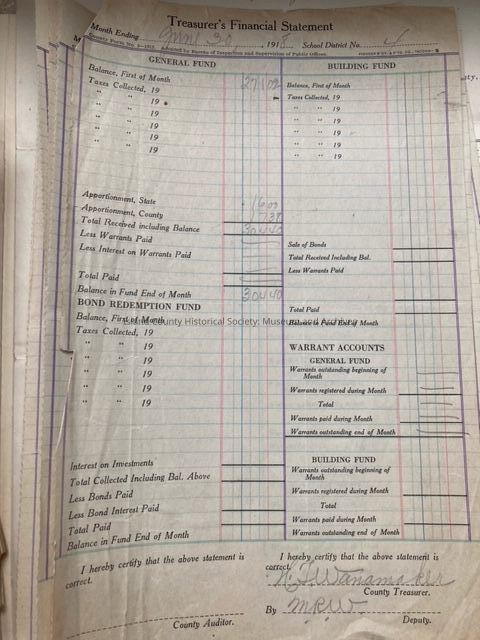 Treasurer's Financial Statement
Month Ending June 30, 1918 School District No. 4
County Form No. 9—1915 Adopted by Bureau of Inspection and Supervision of Public Offices
GENERAL FUND
Balance, First of Month 27102
Taxes Collected, 19
" " 19
" " 19
" " 19
" " 19
" " 19
Apportionment, State 1600
Apportionment, County 1738
Total Received including Balance 30440
Less Warrants Paid
Less Interest on Warrants Paid
Total Paid
Balance in Fund End of Month 30440
BOND REDEMPTION FUND
Balance, First of Month
Taxes Collected, 19
" " 19
" " 19
" " 19
" " 19
" " 19
Interest on Investments
Total Collected Including Bal. Above
Less Bonds Paid
Less Bond Interest Paid
Total Paid
Balance in Fund End of Month
I hereby certify that the above statement is
correct.
County Auditor.
BUILDING FUND
Balance, First of Month
Taxes Collected, 19
" " 19
" " 19
" " 19
" " 19
" " 19
Sale of Bonds
Total Received Including Bal.
Less Warrants Paid
Total Paid
Balance in Fund End of Month
WARRANT ACCOUNTS
GENERAL FUND
Warrants outstanding beginning of
Month
Warrants registered during Month
Total
Warrants paid during Month
Warrants outstanding end of Month
BUILDING FUND
Warrants outstanding beginning of
Month
Warrants registered during Month
Total
Warrants paid during Month
Warrants outstanding end of Month
I hereby certify that the above statement is
correct.
Wanamaker
County Treasurer.
By M.R.W.
Deputy.
County Historical Society: Museum and Archive